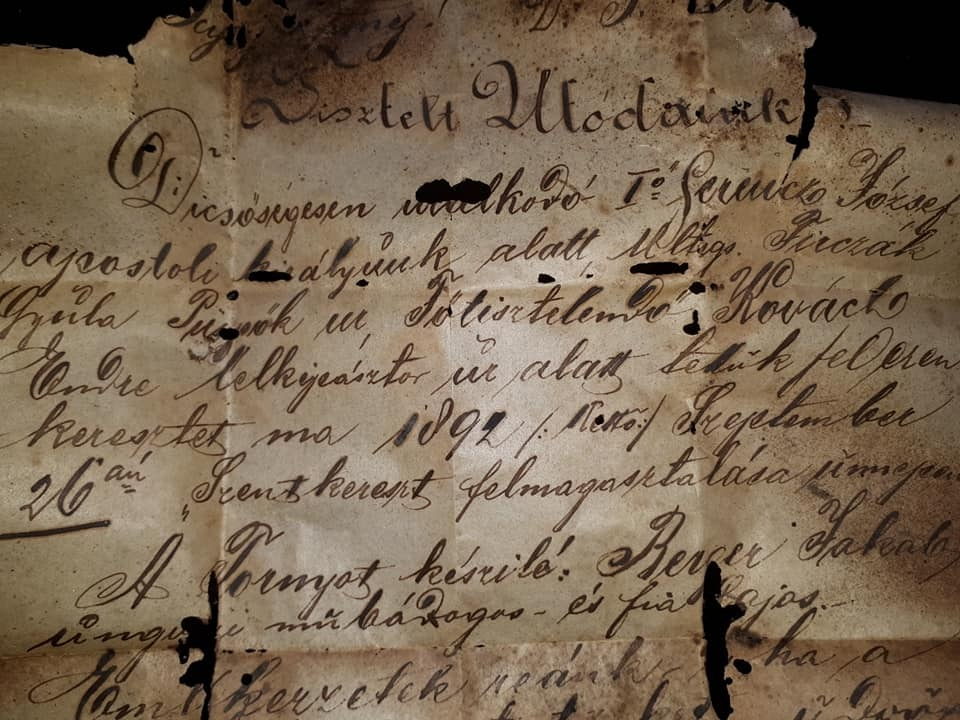 Tisztelt Utódaink
Dicsőségesen uralkodó I-ő Ferencz József
apostoli királyunk alatt Mltsgs. Firczák
Gyűla Püspök úr, Főtisztelendő Kovách
Endre lelkipásztor úr alatt tettük fel eren
keresztet ma 1892 /: Kettő:/ Szeptember
26 án "Szentkereszt felmagasztalása ünnepén
A Tornyot készité: Berger Jakab,
ungvári műbádogos - és fia Lajos.-
Emlékezzetek reánk ha a